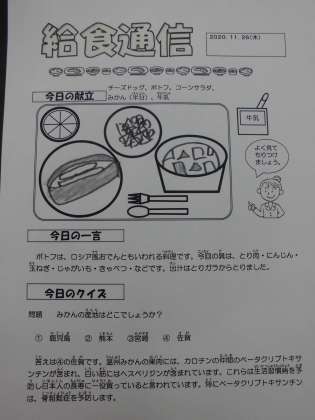 給食通信
2020.11.26(木)
今日の献立
チーズドッグ、ポトフ、コーンサラダ、
みかん(半分)、牛乳
牛乳
よく見て
もりつけ
ましょう。
今日の一言
ポトフは、ロシア風おでんともいわれる料理です。今回の具は、とり肉・にんじん・
玉ねぎ・じゃがいも・きゃべつ・などです。出汁はとりガラからとりました。
今日のクイズ
問題 みかんの産地はどこでしょうか？
① 鹿児島 ② 熊本 ③宮崎 ④ 佐賀
答えは④の佐賀です。温州みかんの果肉には、カロチンの仲間のベータクリプトキサ
ンチンが含まれ、白い筋にはヘスペリジンが含まれています。これらは生活習慣病を予
防し日本人の長寿に一役買っていると言われています。特にベータクリプトキサンチン
は、骨粗鬆症を予防します。